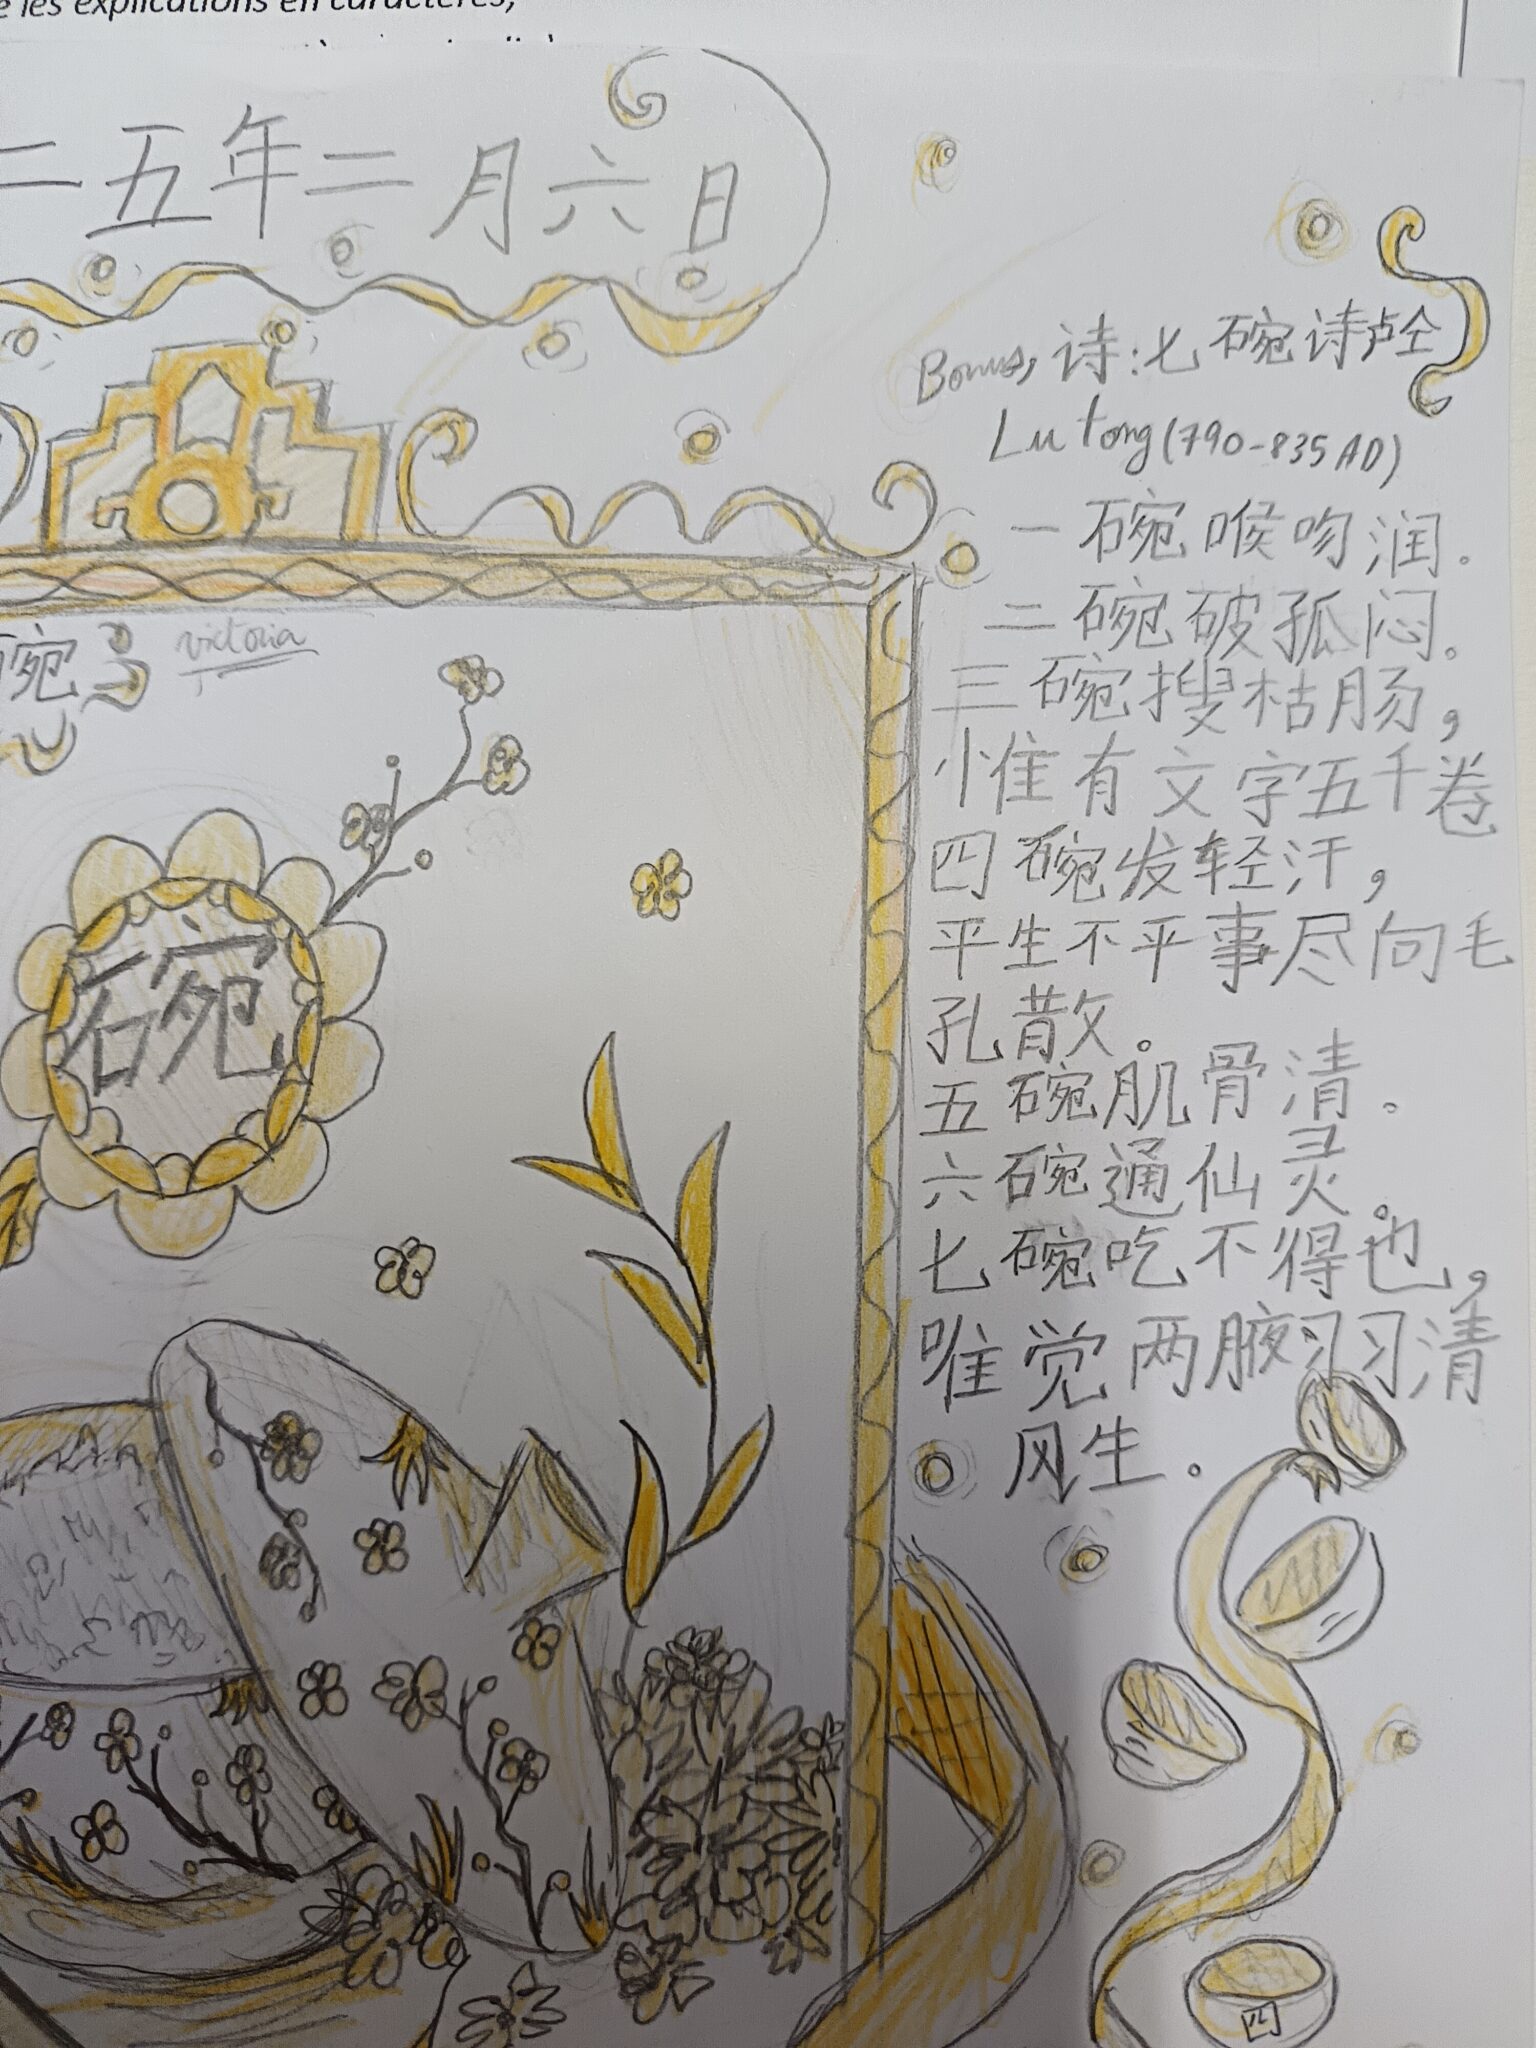 e les explications en caractères,
二五年二月六日
Bonus, 诗:七碗诗卢仝
Lu tong (790-835 AD)
一碗喉吻润.
二碗破孤闷。
三碗搜枯肠,
惟有文字五千卷
四碗发轻汗,
平生不平事尽向毛
孔散。
五碗肌骨清。
六碗通仙灵。
七碗吃不得也,
唯觉两腋习习清
风生。
碗
victoria
碗
四